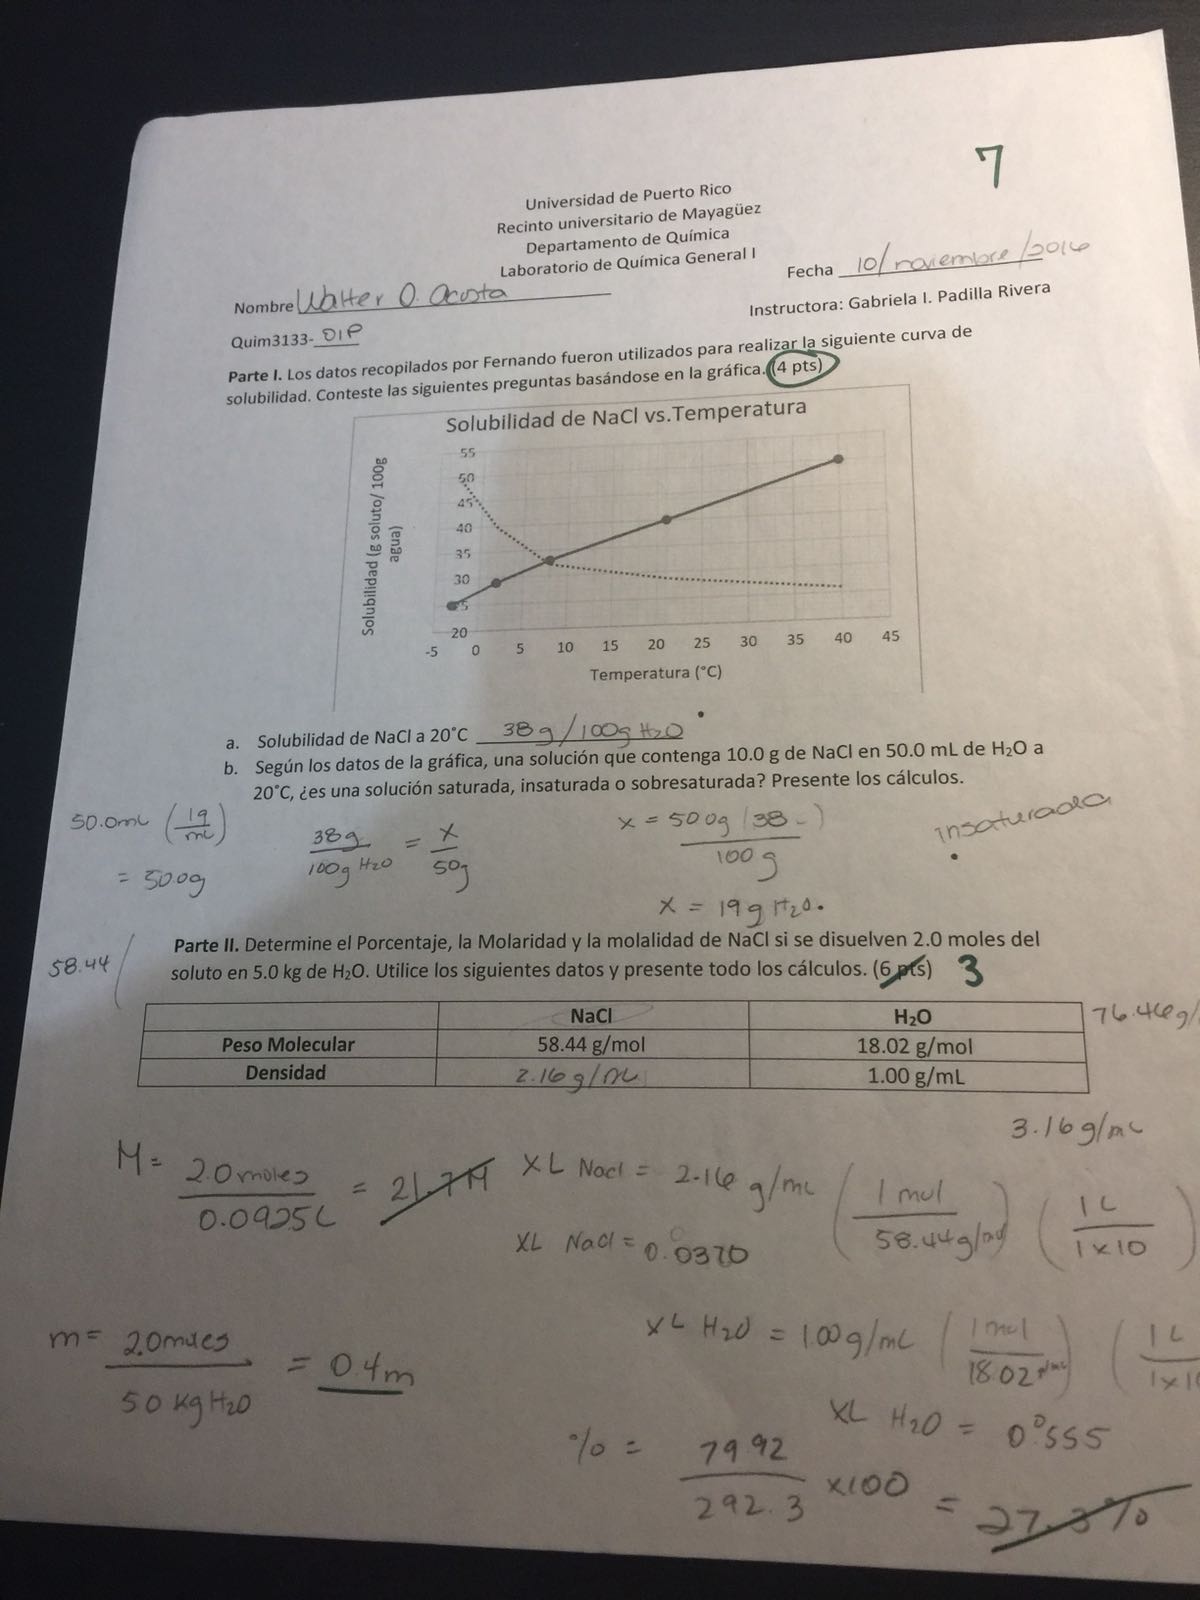 7
Universidad de Puerto Rico
Recinto universitario de Mayagüez
Departamento de Química
Laboratorio de Química General I
Fecha 10/noviembre/2016
Nombre Walter O. Acosta
Instructora: Gabriela I. Padilla Rivera
Quim3133-01P
Parte I. Los datos recopilados por Fernando fueron utilizados para realizar la siguiente curva de
solubilidad. Conteste las siguientes preguntas basándose en la gráfica. (4 pts)
Solubilidad de NaCl vs.Temperatura
Solubilidad (g soluto/ 100g
agua)
55
50
45
40
35
30
25
20
-5 0 5 10 15 20 25 30 35 40 45
Temperatura (°C)
a. Solubilidad de NaCl a 20°C 38g/100g H2O
b. Según los datos de la gráfica, una solución que contenga 10.0 g de NaCl en 50.0 mL de H₂O a
20°C, ¿es una solución saturada, insaturada o sobresaturada? Presente los cálculos.
50.0mL (1g/mL)
= 50.0g
38g/100g H2O = x/50g
x = 50.0g (38 -)
100g
x = 19g H2O.
insaturada
Parte II. Determine el Porcentaje, la Molaridad y la molalidad de NaCl si se disuelven 2.0 moles del
soluto en 5.0 kg de H₂O. Utilice los siguientes datos y presente todo los cálculos. (6 pts) 3
58.44
NaCl H₂O
76.46g/
Peso Molecular 58.44 g/mol 18.02 g/mol
Densidad 2.16g/mL 1.00 g/mL
3.16g/mL
M = 2.0moles/0.0925L = 21.7M
XL NaCl = 2.16 g/mL (1 mol/58.44g/mol) (1L/1x10)
XL NaCl = 0.0370
XL H2O = 1.00g/mL (1mol/18.02) (1L/1x10
m = 2.0moles/5.0 kg H2O = 0.4m
XL H2O = 0.555
% = 79.92/292.3 x100 = 27.3%